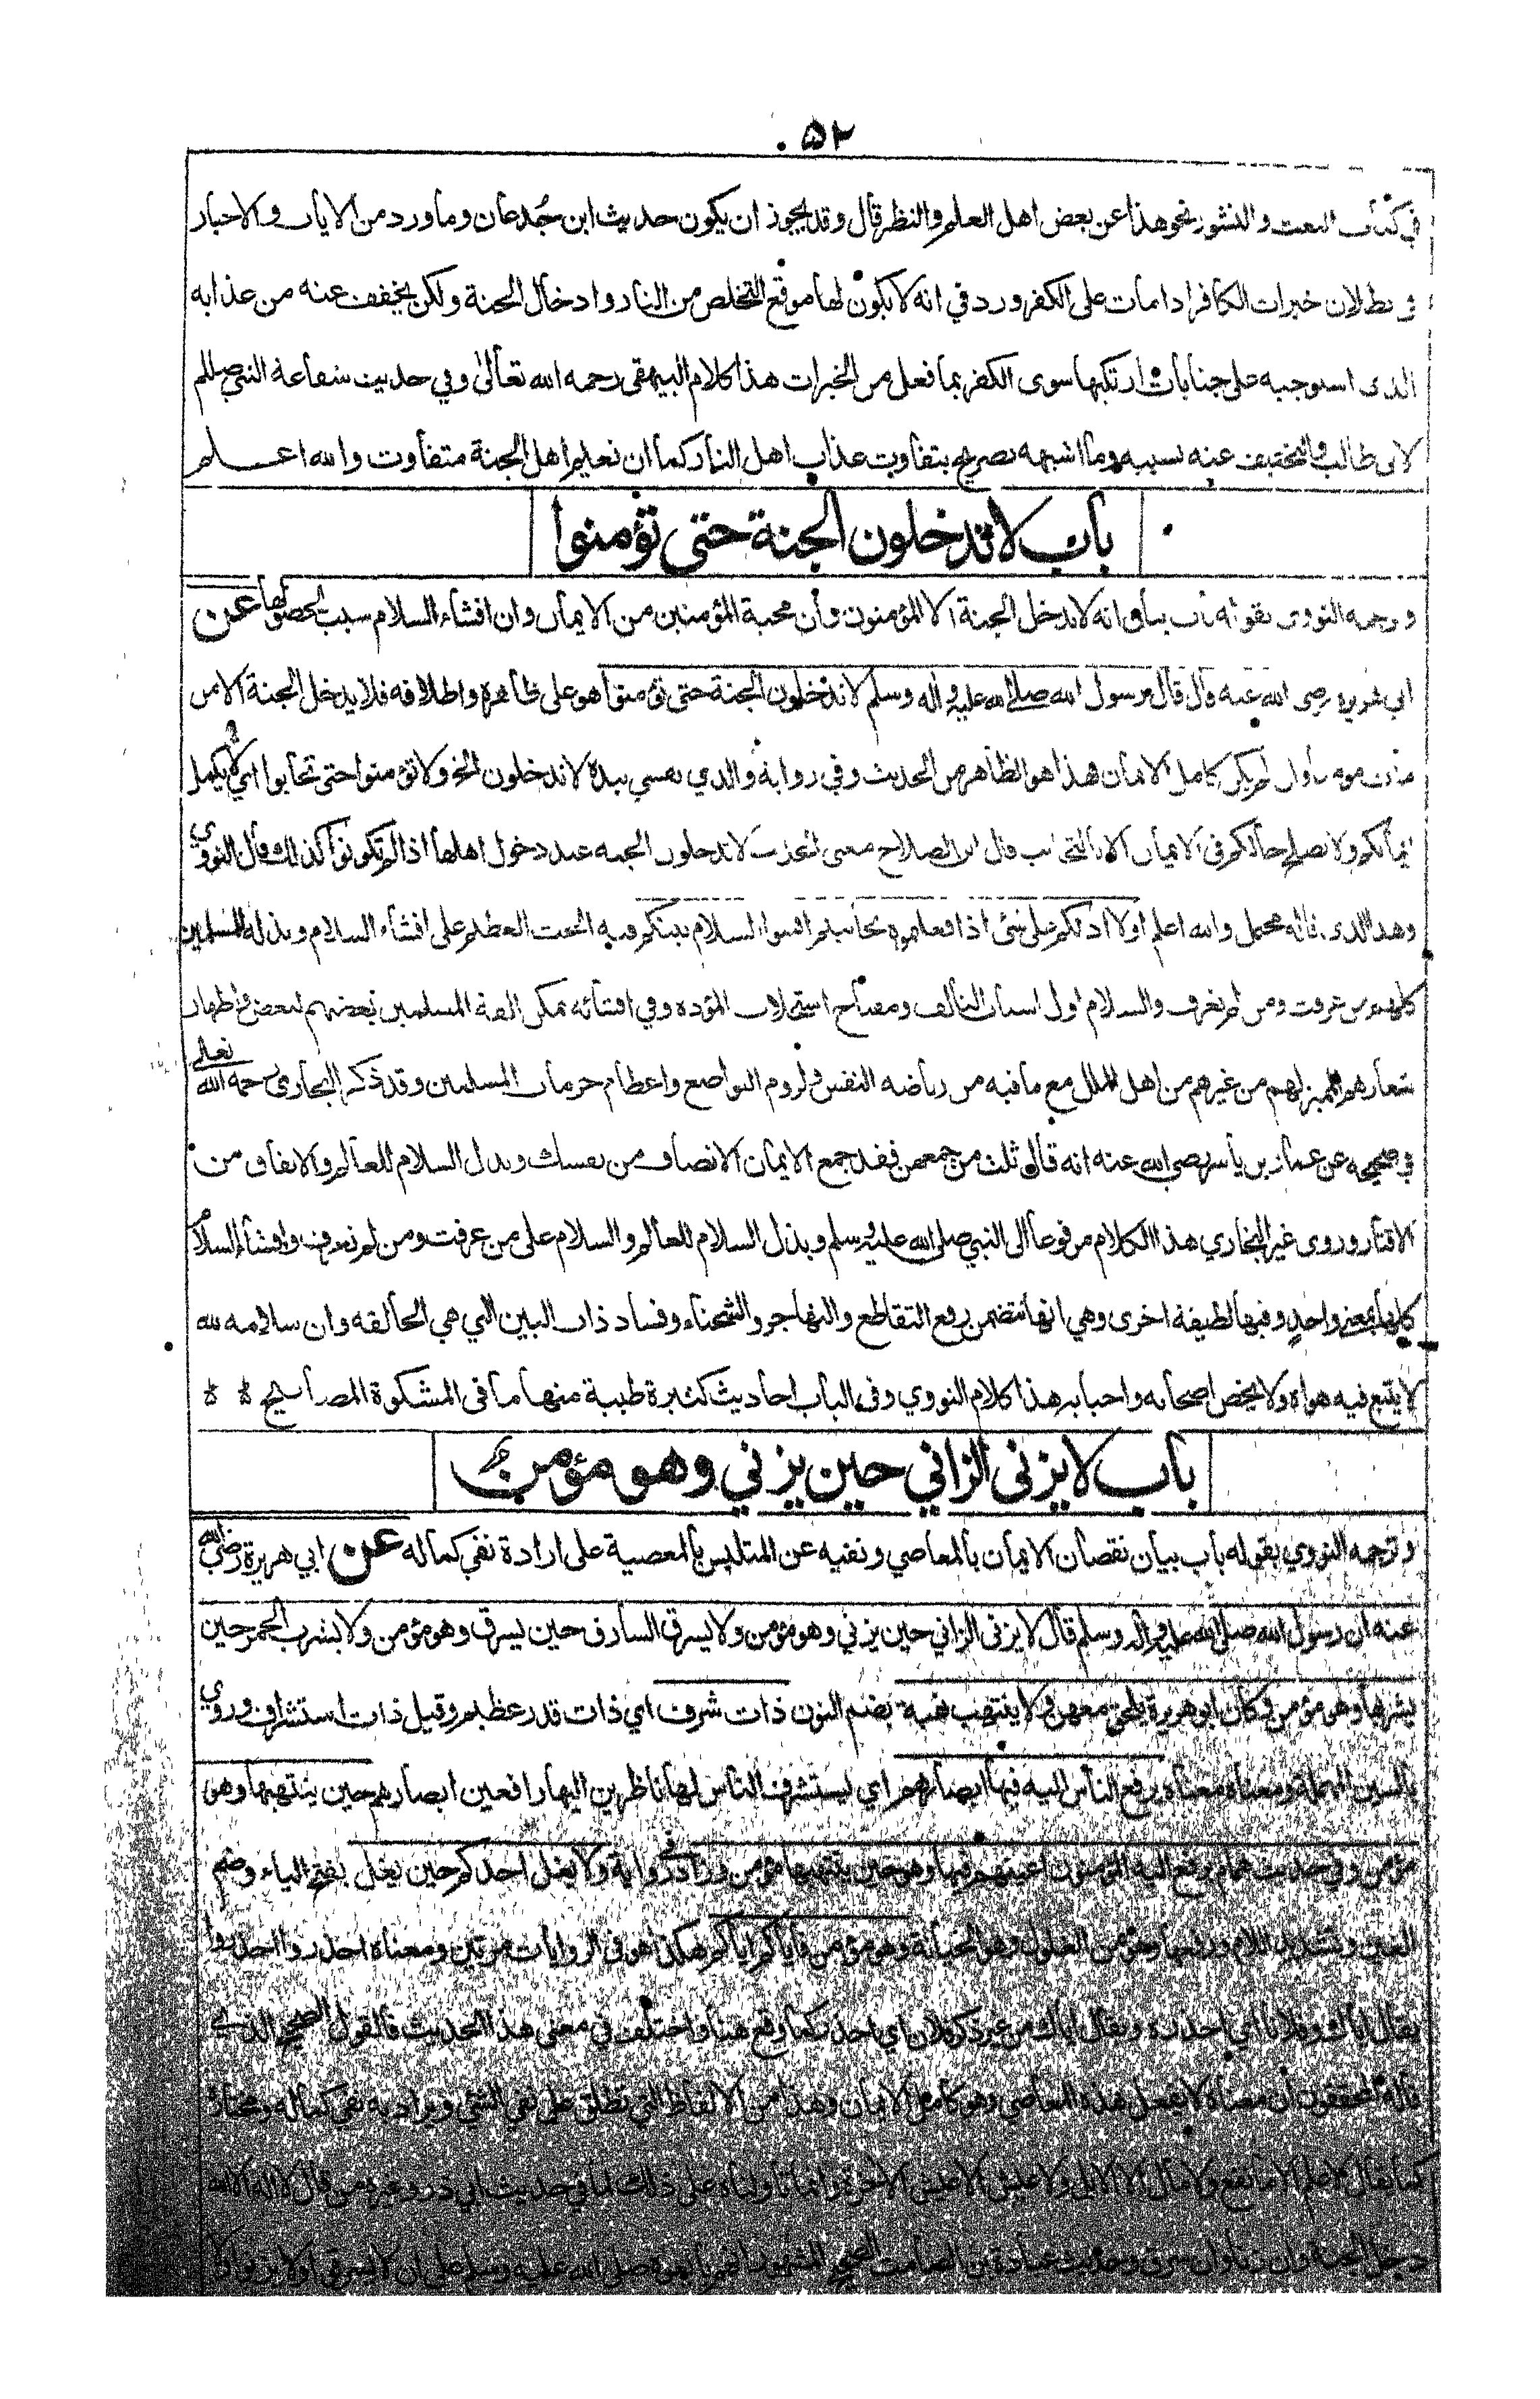 ٥٢
في كتاب البعث والنشور نحو هذا عن بعض اهل العلم والنظر قال وقد يجوز ان يكون حديث ابن جُدعان وما ورد من الايات والاخبار
في بطلان خيرات الكافر اذا مات على الكفر ورد في انه لا يكون لها موقع التخلص من النار وادخال الجنة ولكن يخفف عنه من عذابه
الذي استوجبه على جنايات ارتكبها سوى الكفر بما فعل من الخيرات هذا كلام البيهقى رحمه الله تعالى وفي حديث شفاعة النبي صللم
لابى طالب والتخفيف عنه بسببه وما اشبهه تصريح بتفاوت عذاب اهل النار كما ان نعيم اهل الجنة متفاوت والله اعلم
باب لا تدخلون الجنة حتى تؤمنوا
وترجمه النووى بقوله باب بيان انه لا يدخل الجنة الا المؤمنون وأن محبة المؤمنين من الايمان وان افشاء السلام سبب لحصولها عن
ابي هريرة رضى الله عنه قال قال رسول الله صلى الله عليه واله وسلم لا تدخلون الجنة حتى تؤمنوا هو على ظاهره واطلاقه فلا يدخل الجنة الا من
مات مومنا وان لم يكن كامل الايمان هذا هو الظاهر من الحديث وفي رواية والذي نفسي بيده لا تدخلون الخ ولا تؤمنوا حتى تحابوا اي لا يكمل
ايمانكم ولا تصلح حالكم فى الايمان الا بالتحابب قال ابن الصلاح معنى الحديث لا تدخلون الجنة عند دخول اهلها اذا لم تكونوا كذلك قال النووي
وهذا الذى قاله محتمل والله اعلم اولا ادلكم على شئ اذا فعلتموه تحاببتم افشوا السلام بينكم فيه الحث العظيم على افشاء السلام وبذله للمسلمين
كلهم من عرفت ومن لم تعرف والسلام اول اسباب التالف ومفتاح استجلاب المؤدة وفي افشائه تمكن الفة المسلمين بعضهم لبعض واظهار
شعارهم المميز لهم من غيرهم من اهل الملل مع ما فيه من رياضه النفس ولزوم التواضع واعظام حرمات المسلمين وقد ذكر البخارى رحمه الله تعالى
في صحيحه عن عمار بن ياسر رضى الله عنه انه قال ثلث من جمعهن فقد جمع الايمان الانصاف من نفسك وبذل السلام للعالم والانفاق من
الاقتار وروى غير البخاري هذا الكلام مرفوعا الى النبي صلى الله عليه وسلم وبذل السلام للعالم والسلام على من عرفت ومن لم تعرف وافشاء السلام
كلها بمعنى واحد وفيها لطيفة اخرى وهي انها تتضمن رفع التقاطع والتهاجر والشحناء وفساد ذات البين التي هي الحالقه وان سلامه لله
لا يتبع فيه هواه ولا يخص اصحابه واحبابه هذا كلام النووي وفى الباب احاديث كثيرة طيبة منها ما فى المشكوة المصابيح
باب لا يزنى الزاني حين يزني وهو مؤمن
وترجمه النووي بقوله باب بيان نقصان الايمان بالمعاصي ونفيه عن المتلبس بالمعصية على ارادة نفي كماله عن ابي هريرة رضي الله
عنه ان رسول الله صلى الله عليه واله وسلم قال لا يزنى الزاني حين يزني وهو مؤمن ولا يسرق السارق حين يسرق وهو مؤمن ولا يشرب الخمر حين
يشربها وهو مؤمن وكان ابو هريرة يلحق معهن ولا ينتهب نهبة بضم النون ذات شرف اي ذات قدر عظيم وقيل ذات استشراف وروي
بالسين المهملة ومعناه يرفع الناس اليه فيها ابصارهم اي يستشرف الناس لها ناظرين اليها رافعين ابصارهم حين ينتهبها وهو
مؤمن وفي حديث همام يرفع اليه المؤمنون اعينهم فيها وهو حين ينتهبها مؤمن وزاد في رواية ولا يغل احدكم حين يغل بفتح الياء وضم
الغين وتشديد اللام ورفعها وهو من الغلول وهو الخيانة وهو مؤمن فاياكم اياكم هكذا هو فى الروايات مرتين ومعناه احذروا احذروا
يقال اياك وفلانا اي احذره ويقال اياك من غير ذكر فلان اي احذر كما وقع هنا واختلف في معنى هذا الحديث فالقول الصحيح الذي
قاله المحققون ان معناه لا يفعل هذه المعاصي وهو كامل الايمان وهذا من الالفاظ التي تطلق على نفي الشئ ويراد به نفي كماله ومختاره
كما يقال لا علم الا ما نفع ولا مال الا الابل ولا عيش الا عيش الاخرة وانما تاولناه على ذلك لما في حديث ابي ذر وغيره من قال لا اله الا الله
دخل الجنة وان زنا وان سرق وحديث عبادة بن الصامت الصحيح المشهور انهم بايعوه صلى الله عليه وسلم على ان لا يسرقوا ولا يزنوا